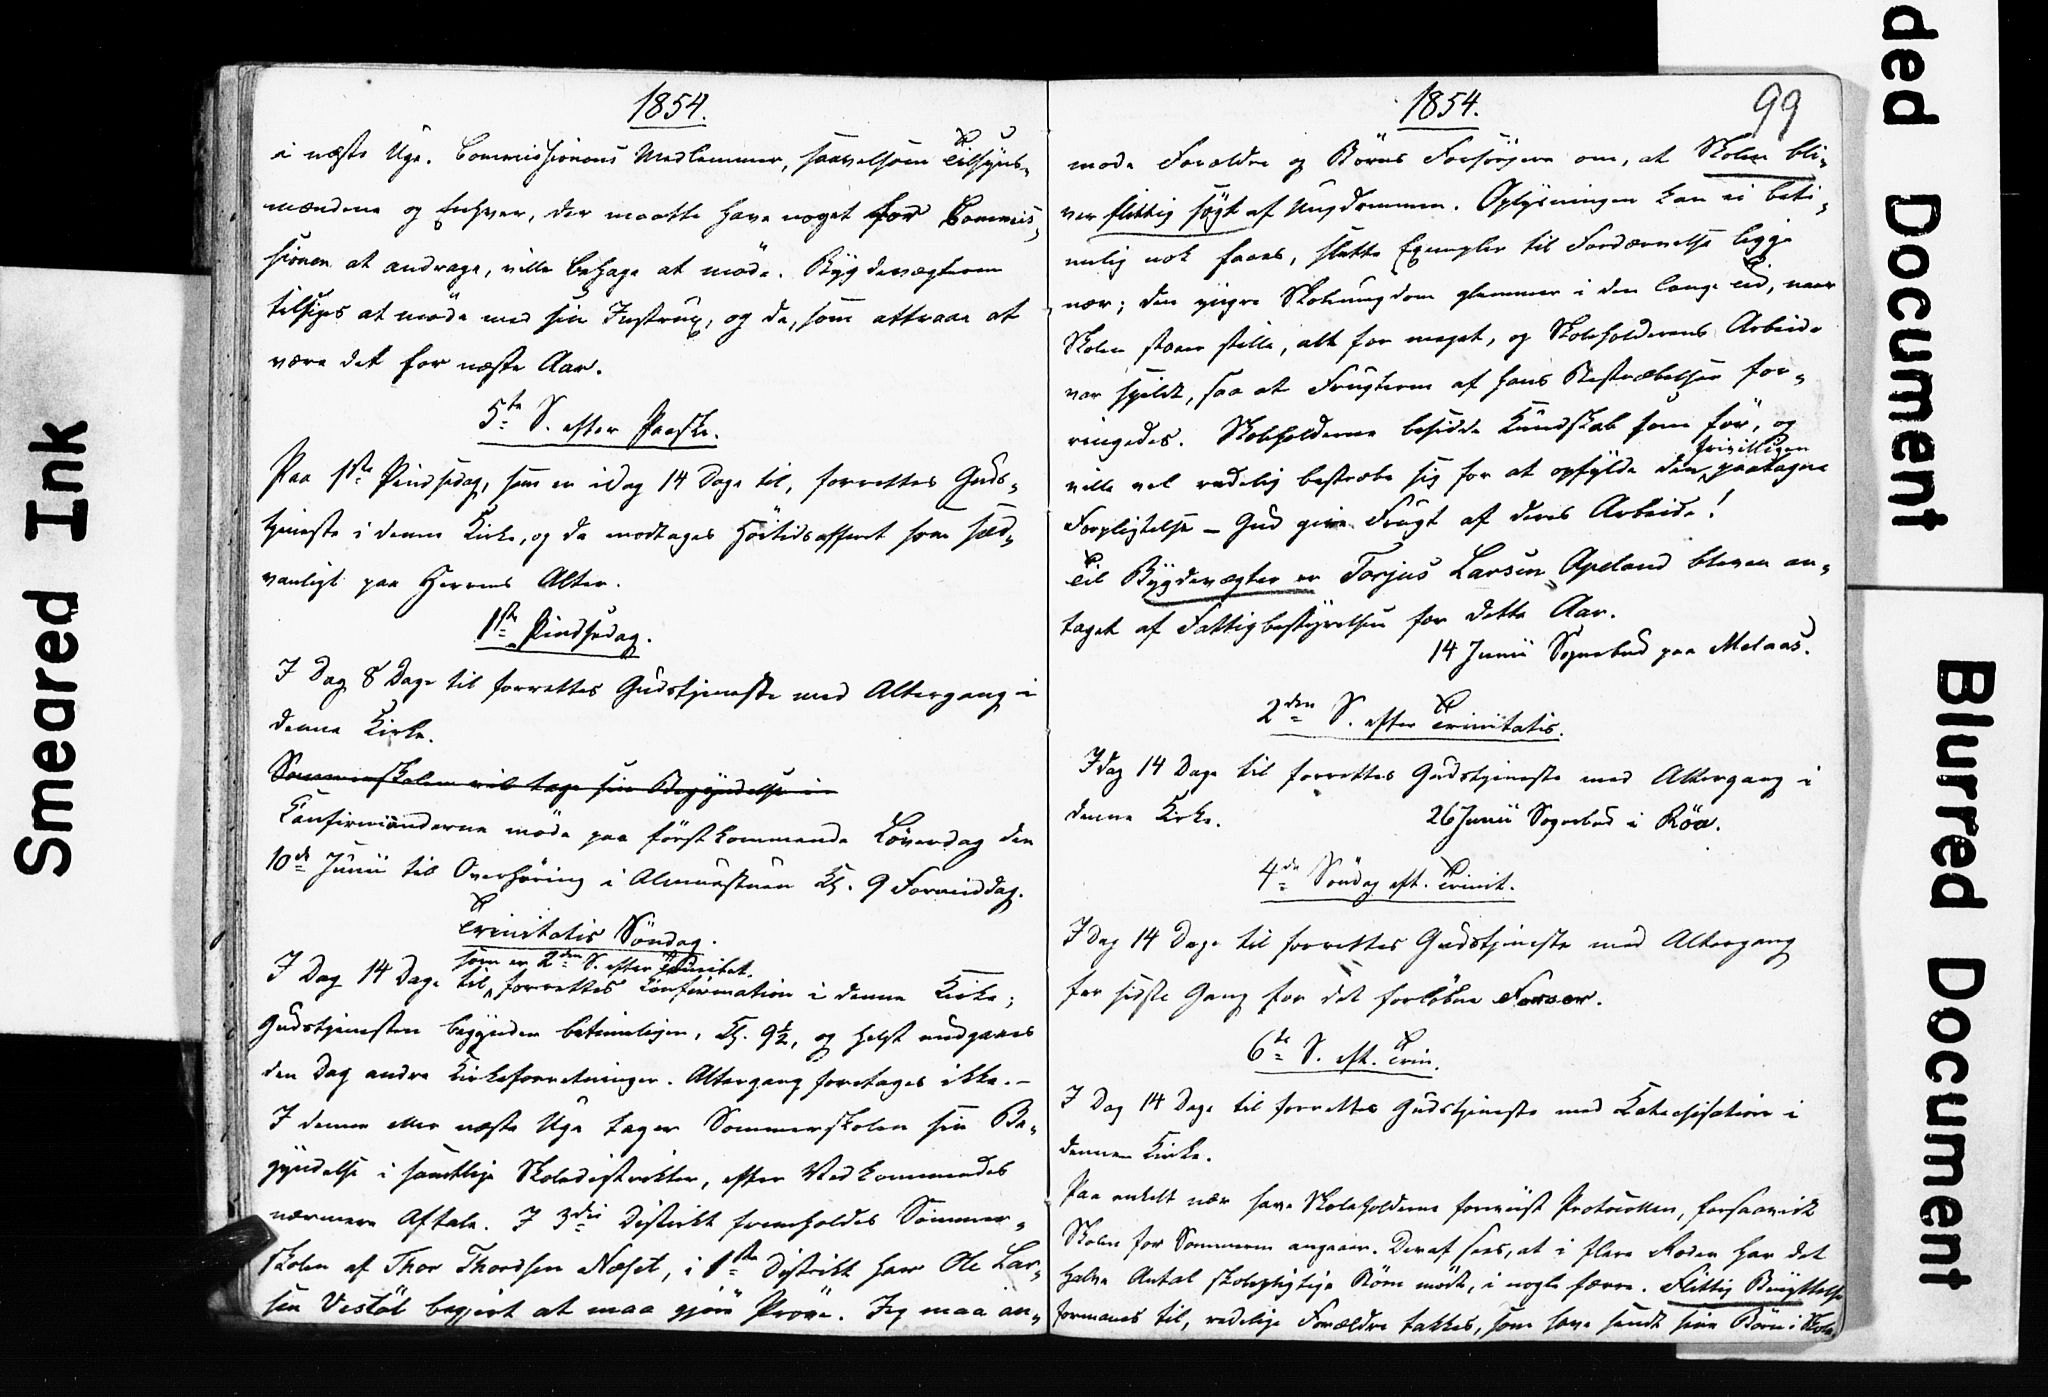 1854.
i næste Uge. Commissionens Medlemmer, saavelsom Tilsyns-
mændene og Enhver, der maatte have noget for Commis-
sionen at andrage, ville behage at møde. Bygdevægteren
tilsiges at møde med sin Instrux, og de, som attraae at
være det for næste Aar.
5te S. efter Paaske.
Paa 1ste Pindsedag, som er idag 14 Dage til, forrettes Guds-
tjeneste i denne Kirke, og da modtages Høitidsofferet som sæd-
vanligt paa Herrens Alter.
1ste Pindsedag.
I Dag 8 Dage til forrettes Gudstjeneste med Altergang i
denne Kirke.
Sommerskolen vil tage sin Begyndelse i
Confirmanderne møde paa førstkommende Løverdag den
10de Junii til Overhøring i Almuestuen Kl. 9 Formiddag.
Trinitatis Søndag.
som er 2den S. efter Trinitat.
I Dag 14 Dage til, forrettes Confirmation i denne Kirke;
Gudstjenesten begynder betimeligen, Kl. 9½, og helst undgaaes
den Dag andre Kirkeforretninger. Altergang foretages ikke. –
I denne eller næste Uge tager Sommerskolen sin Be-
gyndelse i samtlige Skoledistrikter, efter Vedkommendes
nærmere Aftale. I 3die Distrikt fremholdes Sommer-
skolen af Thor Thordsen Næset, i 1ste Distrikt har Ole Lar-
sen Vestøl begjert at maa gjøre Prøve. Jeg maa an-
1854.
99
mode Forældre og Børns Forsørgere om, at Skolen bli-
ver flittig søgt af Ungdommen. Oplysningen kan ei beti-
melig nok faaes, slette Exempler til Fordærvelse ligge
nær; den yngre Skoleungdom glemmer i den lange Tid, naar
Skolen staaer stille, alt for meget, og Skoleholderens Arbeide
var spildt, saa at Frugterne af hans Bestræbelser for-
ringedes. Skoleholderne besidde Kundskab som før, og
frivilligen
ville vel redelig bestræbe sig for at opfylde den paatagne
Forpligtelse – Gud give Frugt af deres Arbeide!
Til Bygdevægter er Torjus Larsen Apeland bleven an-
taget af Fattigbestyrelsen for dette Aar.
14 Junii Sognebud paa Melaas.
2den S. efter Trinitatis.
Idag 14 Dage til forrettes Gudstjeneste med Altergang i
denne Kirke.
26 Junii Sognebud i Röa.
4de Søndag eft. Trinit.
I Dag 14 Dage til forrettes Gudstjeneste med Altergang
for sidste Gang for det forløbne Foraar.
6te S. eft. Trin.
I Dag 14 Dage til forrettes Gudstjeneste med Katechisation i
denne Kirke.
Paa enkelt nær have Skoleholderne foreviist Protocollen, forsaavidt
Skolen for Sommeren angaaer. Deraf sees, at i flere Roder har det
halve Antal skolepligtige Børn mødt, i nogle færre. Flittig Benyttelse
formanes til, redelige Forældre takkes, som have sendt sine Børn i Skole
Smeared Ink
ded Document
Blurred Document